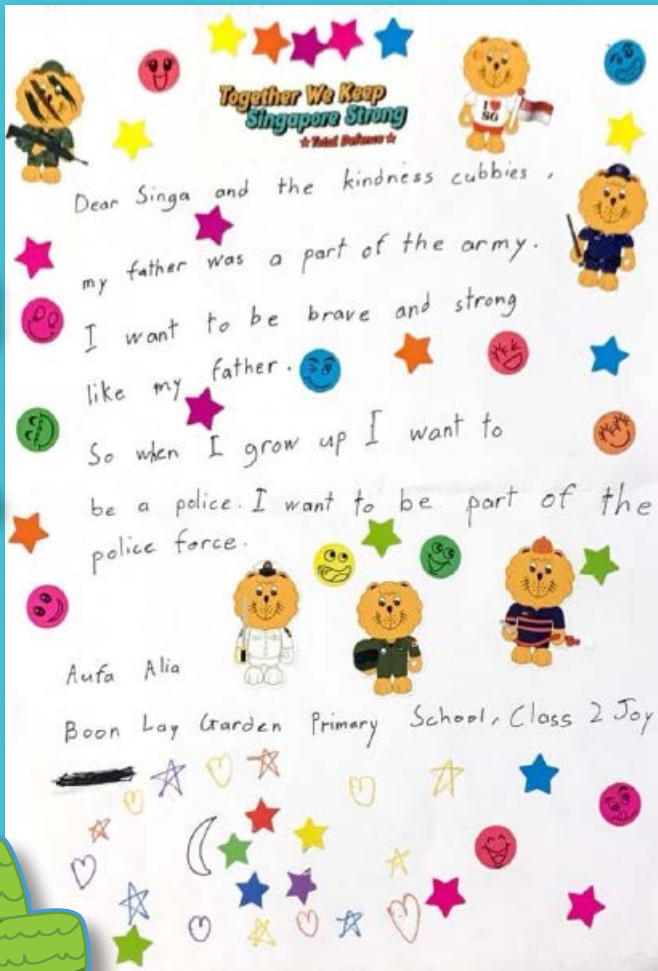 Together We Keep
Singapore Strong
Total Defence
I ♥
SG
Dear Singa and the kindness cubbies,
my father was a part of the army.
I want to be brave and strong
like my father.
So when I grow up I want to
be a police. I want to be part of the
police force.
Aufa Alia
Boon Lay Garden Primary School, Class 2 Joy